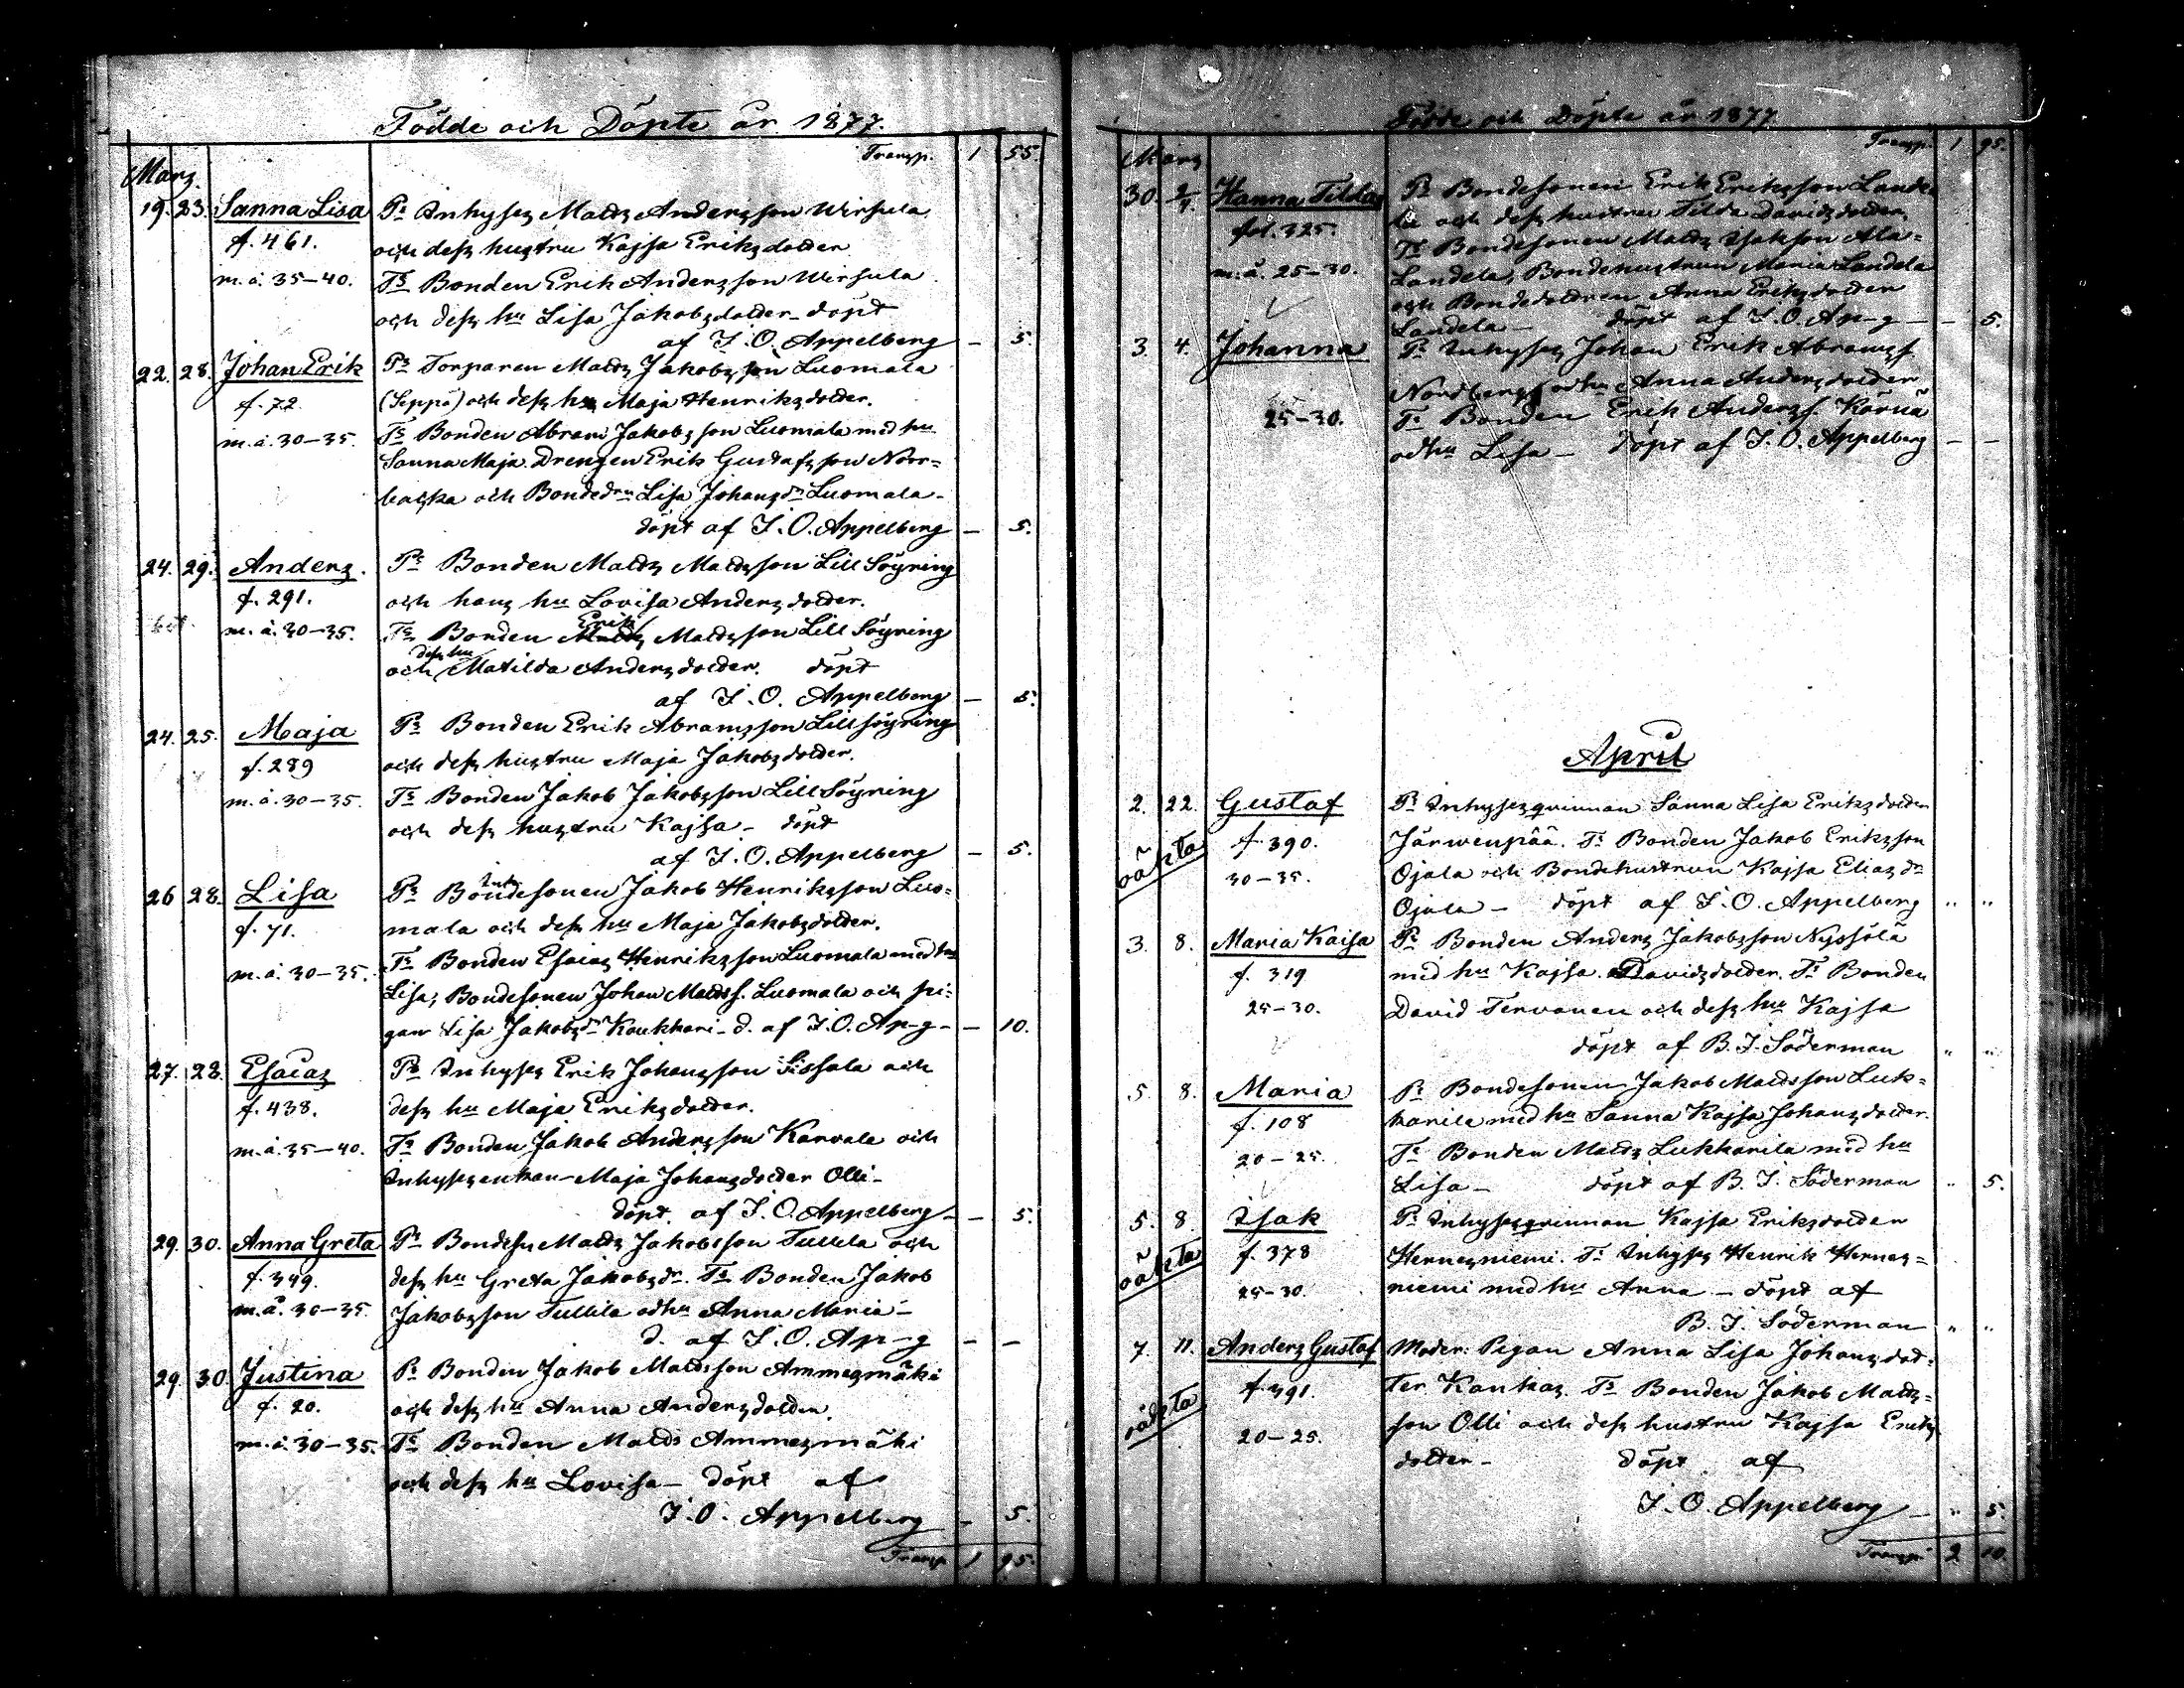 Födde och Döpte år 1877.
Transp. 1 55.
Mars.
19. 23. Sanna Lisa Prs Inhyses Matts Andersson Wirsula
f. 461. och dess hustru Kajsa Eriksdotter
m. å. 35–40. Ts Bonden Erik Andersson Wirsula
och dess hu Lisa Jakobsdotter – döpt
af I. O. Appelberg – 5.
22. 28. Johan Erik Prs Torparen Matts Jakobsson Luomala
f. 72. (Seppä) och dess hu Maja Henriksdotter.
m. å. 30–35. Ts Bonden Abram Jakobsson Luomala med hu
Sanna Maja. Drengen Erik Gustafsson Norr=
backa och Bondedrn Lisa Johansdr Luomala –
döpt af I. O. Appelberg – 5.
24. 29. Anders. Prs Bonden Matts Mattsson Lill Söyring
f. 291. och hans hu Lovisa Andersdotter.
Erik
m. å. 30–35. Ts Bonden Matts Mattsson Lill Söyring
dess hu
och Matilda Andersdotter. döpt
af I. O. Appelberg – 5.
24. 25. Maja Prs Bonden Erik Abramsson Lillsöyring
f. 289 och dess hustru Maja Jakobsdotter.
m. å. 30–35. Ts Bonden Jakob Jakobsson Lill Söyring
och dess hustru Kajsa – döpt
af I. O. Appelberg – 5.
26 28. Lisa Prs Bondesonen Jakob Henriksson Luo=
f. 71. mala och dess hu Maja Jakobsdotter.
m. å. 30–35. Ts Bonden Esaias Henriksson Luomala med hu
Lisa; Bondesonen Johan Matts. Luomala och pi=
gan Lisa Jakobsdr Koukkari – d. af I. O. Ap–g – – 10.
27. 28. Esaias Prs Inhyses Erik Johansson Sissala och
f. 438. dess hu Maja Eriksdotter.
m. å. 35–40. Ts Bonden Jakob Andersson Karvala och
Inhysesenkan – Maja Johansdotter Olli –
döpt af I. O. Appelberg – – 5.
29. 30. Anna Greta Prs Bondes. Matts Jakobsson Tullila och
f. 349. dess hu Greta Jakobsdr. Ts Bonden Jakob
m. å. 30–35. Jakobsson Tullila och hu Anna Maria –
d. af I. O. Ap–g – –
29. 30. Justina Prs Bonden Jakob Mattsson Ammesmäki
f. 20. och dess hu Anna Andersdotter.
m. å. 30–35. Ts Bonden Matts Ammesmäki
och dess hu Lovisa – döpt af
I. O. Appelberg – 5.
Transp. 1 95.
Födde och Döpte år 1877
Transp. 1 95.
Mars
30. 2/4. Hanna Tilda Prs Bondesonen Erik Eriksson Lande=
fol. 325. la och dess hustru Tilda Davidsdotter.
Ts Bondesonen Matts Isaksson Ala=
m. å. 25–30. Landela, Bondehustrun Maria Landela
och Bondedottren Anna Eriksdotter
Landela – döpt af I. O. Ap–g – – 5.
3. 4. Johanna Prs Inhyses Johan Erik Abrams.
Nordberg och hu Anna Andersdotter
25–30. Ts Bonden Erik Anderss. Körnä
och hu Lisa – döpt af I. O. Appelberg – –
April
2. 22. Gustaf Prs Inhysesqvinnan Sanna Lisa Eriksdotter
oäkta f. 390. Järwenpää. Ts Bonden Jakob Eriksson
30–35. Ojala och Bondehustrun Kajsa Eliasdr
Ojala – döpt af I. O. Appelberg " "
3. 8. Maria Kaisa Prs Bonden Anders Jakobsson Nyssölä
f. 319 med hu Kajsa Davidsdotter. Ts Bonden
25–30. David Tervonen och dess hu Kajsa
döpt af B. I. Söderman " "
5. 8. Maria Prs Bondesonen Jakob Mattsson Luk=
f. 108 karila med hu Sanna Kajsa Johansdotter.
20–25. Ts Bonden Matts Lukkarila med hu
Lisa – döpt af B. I. Söderman " 5.
5. 8. Isak Prs Inhysesqvinnan Kajsa Eriksdotter
oäkta f. 378 Hernesniemi. Ts Inhyses Henrik Hernes=
25–30. niemi med hu Anna – döpt af
B. I. Söderman " "
7. 11. Anders Gustaf Moder: Pigan Anna Lisa Johansdot=
oäkta f. 391. ter Kankas. Ts Bonden Jakob Matts=
20–25. son Olli och dess hustru Kajsa Eriks
dotter – döpt af
I. O. Appelberg – " 5.
Transp. 2 10.